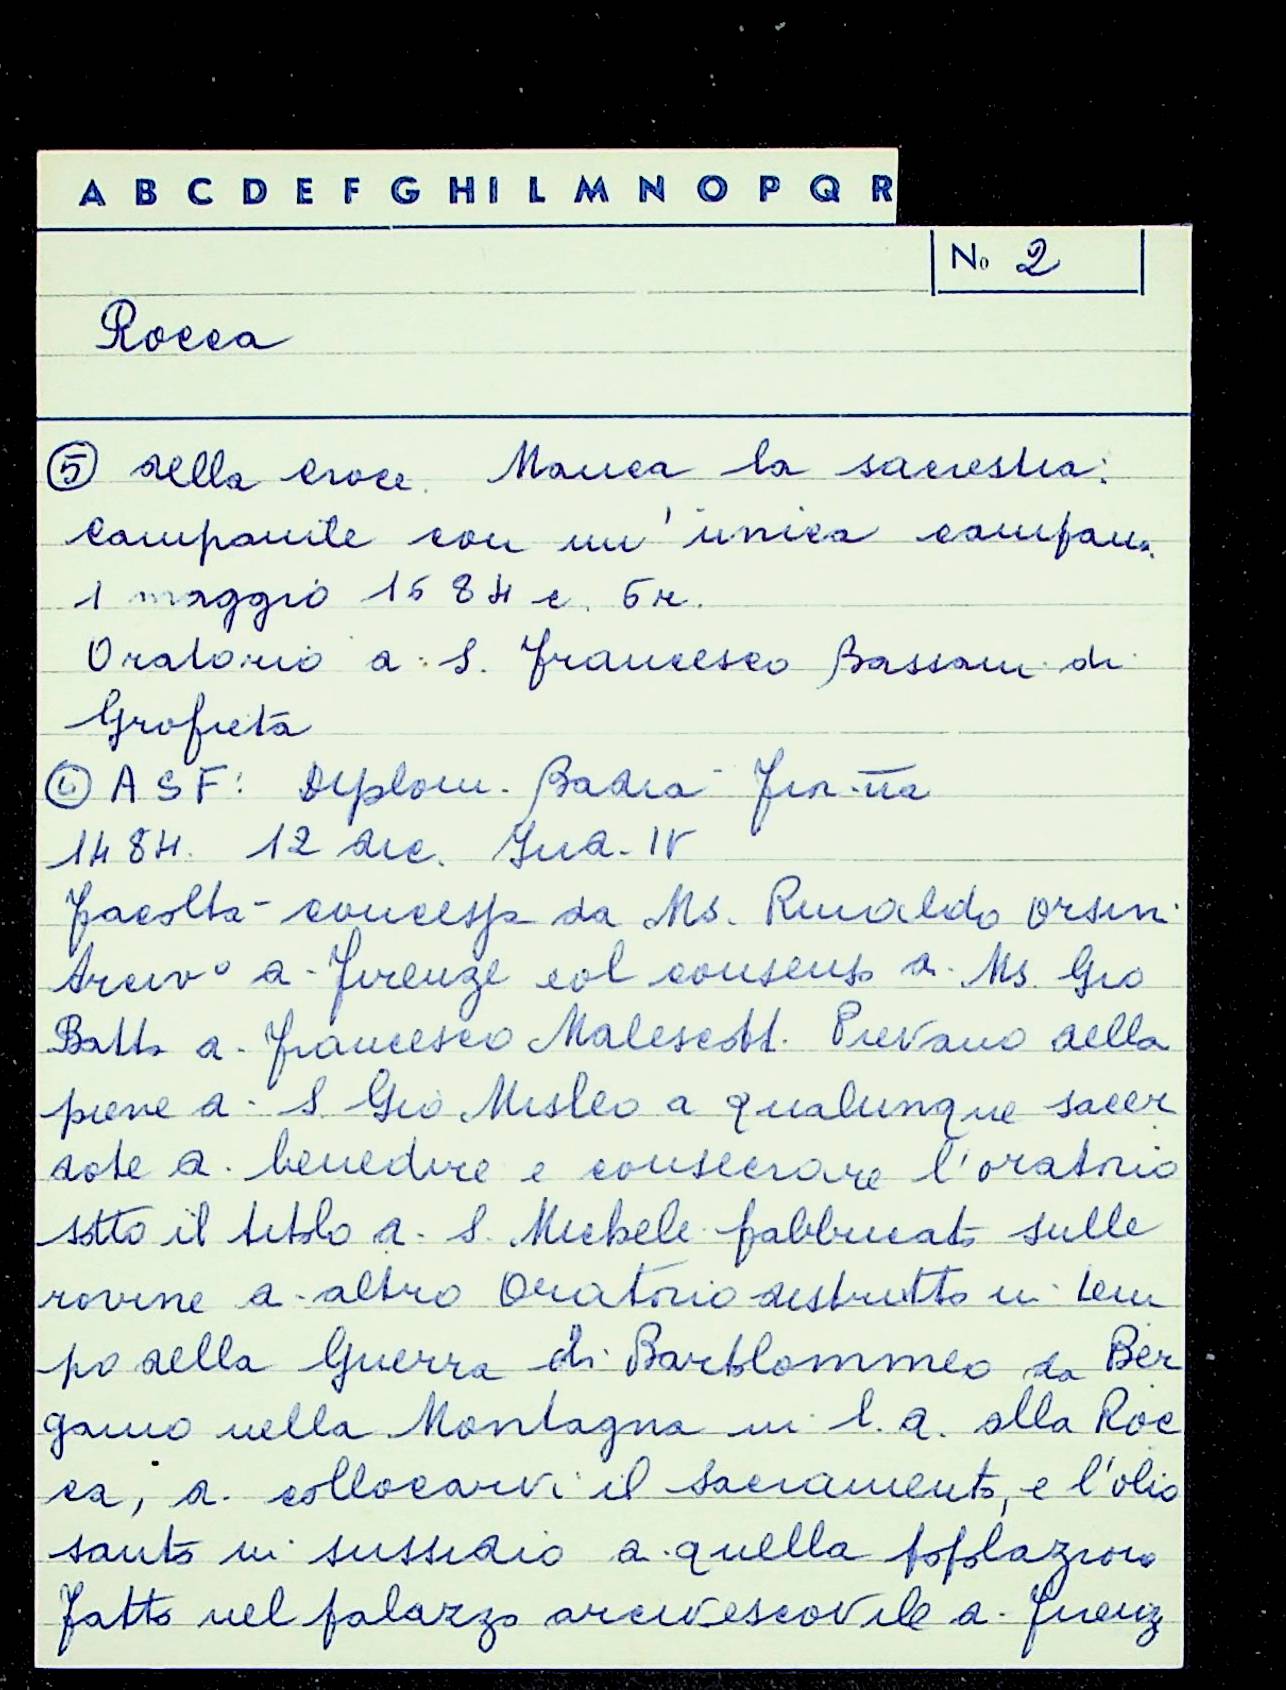 A B C D E F G H I L M N O P Q R
No 2
Rocca
⑤ della croce. Manca la sacrestia:
Campanile con un'unica campan.
1 maggio 1584 c. 5r.
Oratorio di S. Francesco Bassani di
Gropieta
④ ASF: Diplom. Badia Fior.na
1484. 12 dic. Ind. IV
facoltà concessa da Ms. Rinaldo Orsini
Arciv° di Firenze col consenso di Ms. Gio
Batta di Francesco Malescott. Pievano della
pieve di S. Gio Misleo a qualunque sacer
dote di benedire e consecrare l'oratorio
sotto il titolo di S. Michele fabbricato sulle
rovine di altro Oratorio distrutto in tem
po della Guerra di Bartolommeo da Ber
gamo nella Montagna in l. d. alla Roc
ca, di collocarvi il Sacramento, e l'olio
santo in sussidio di quella popolazione
fatto nel palazzo arcivescovile di Firenz